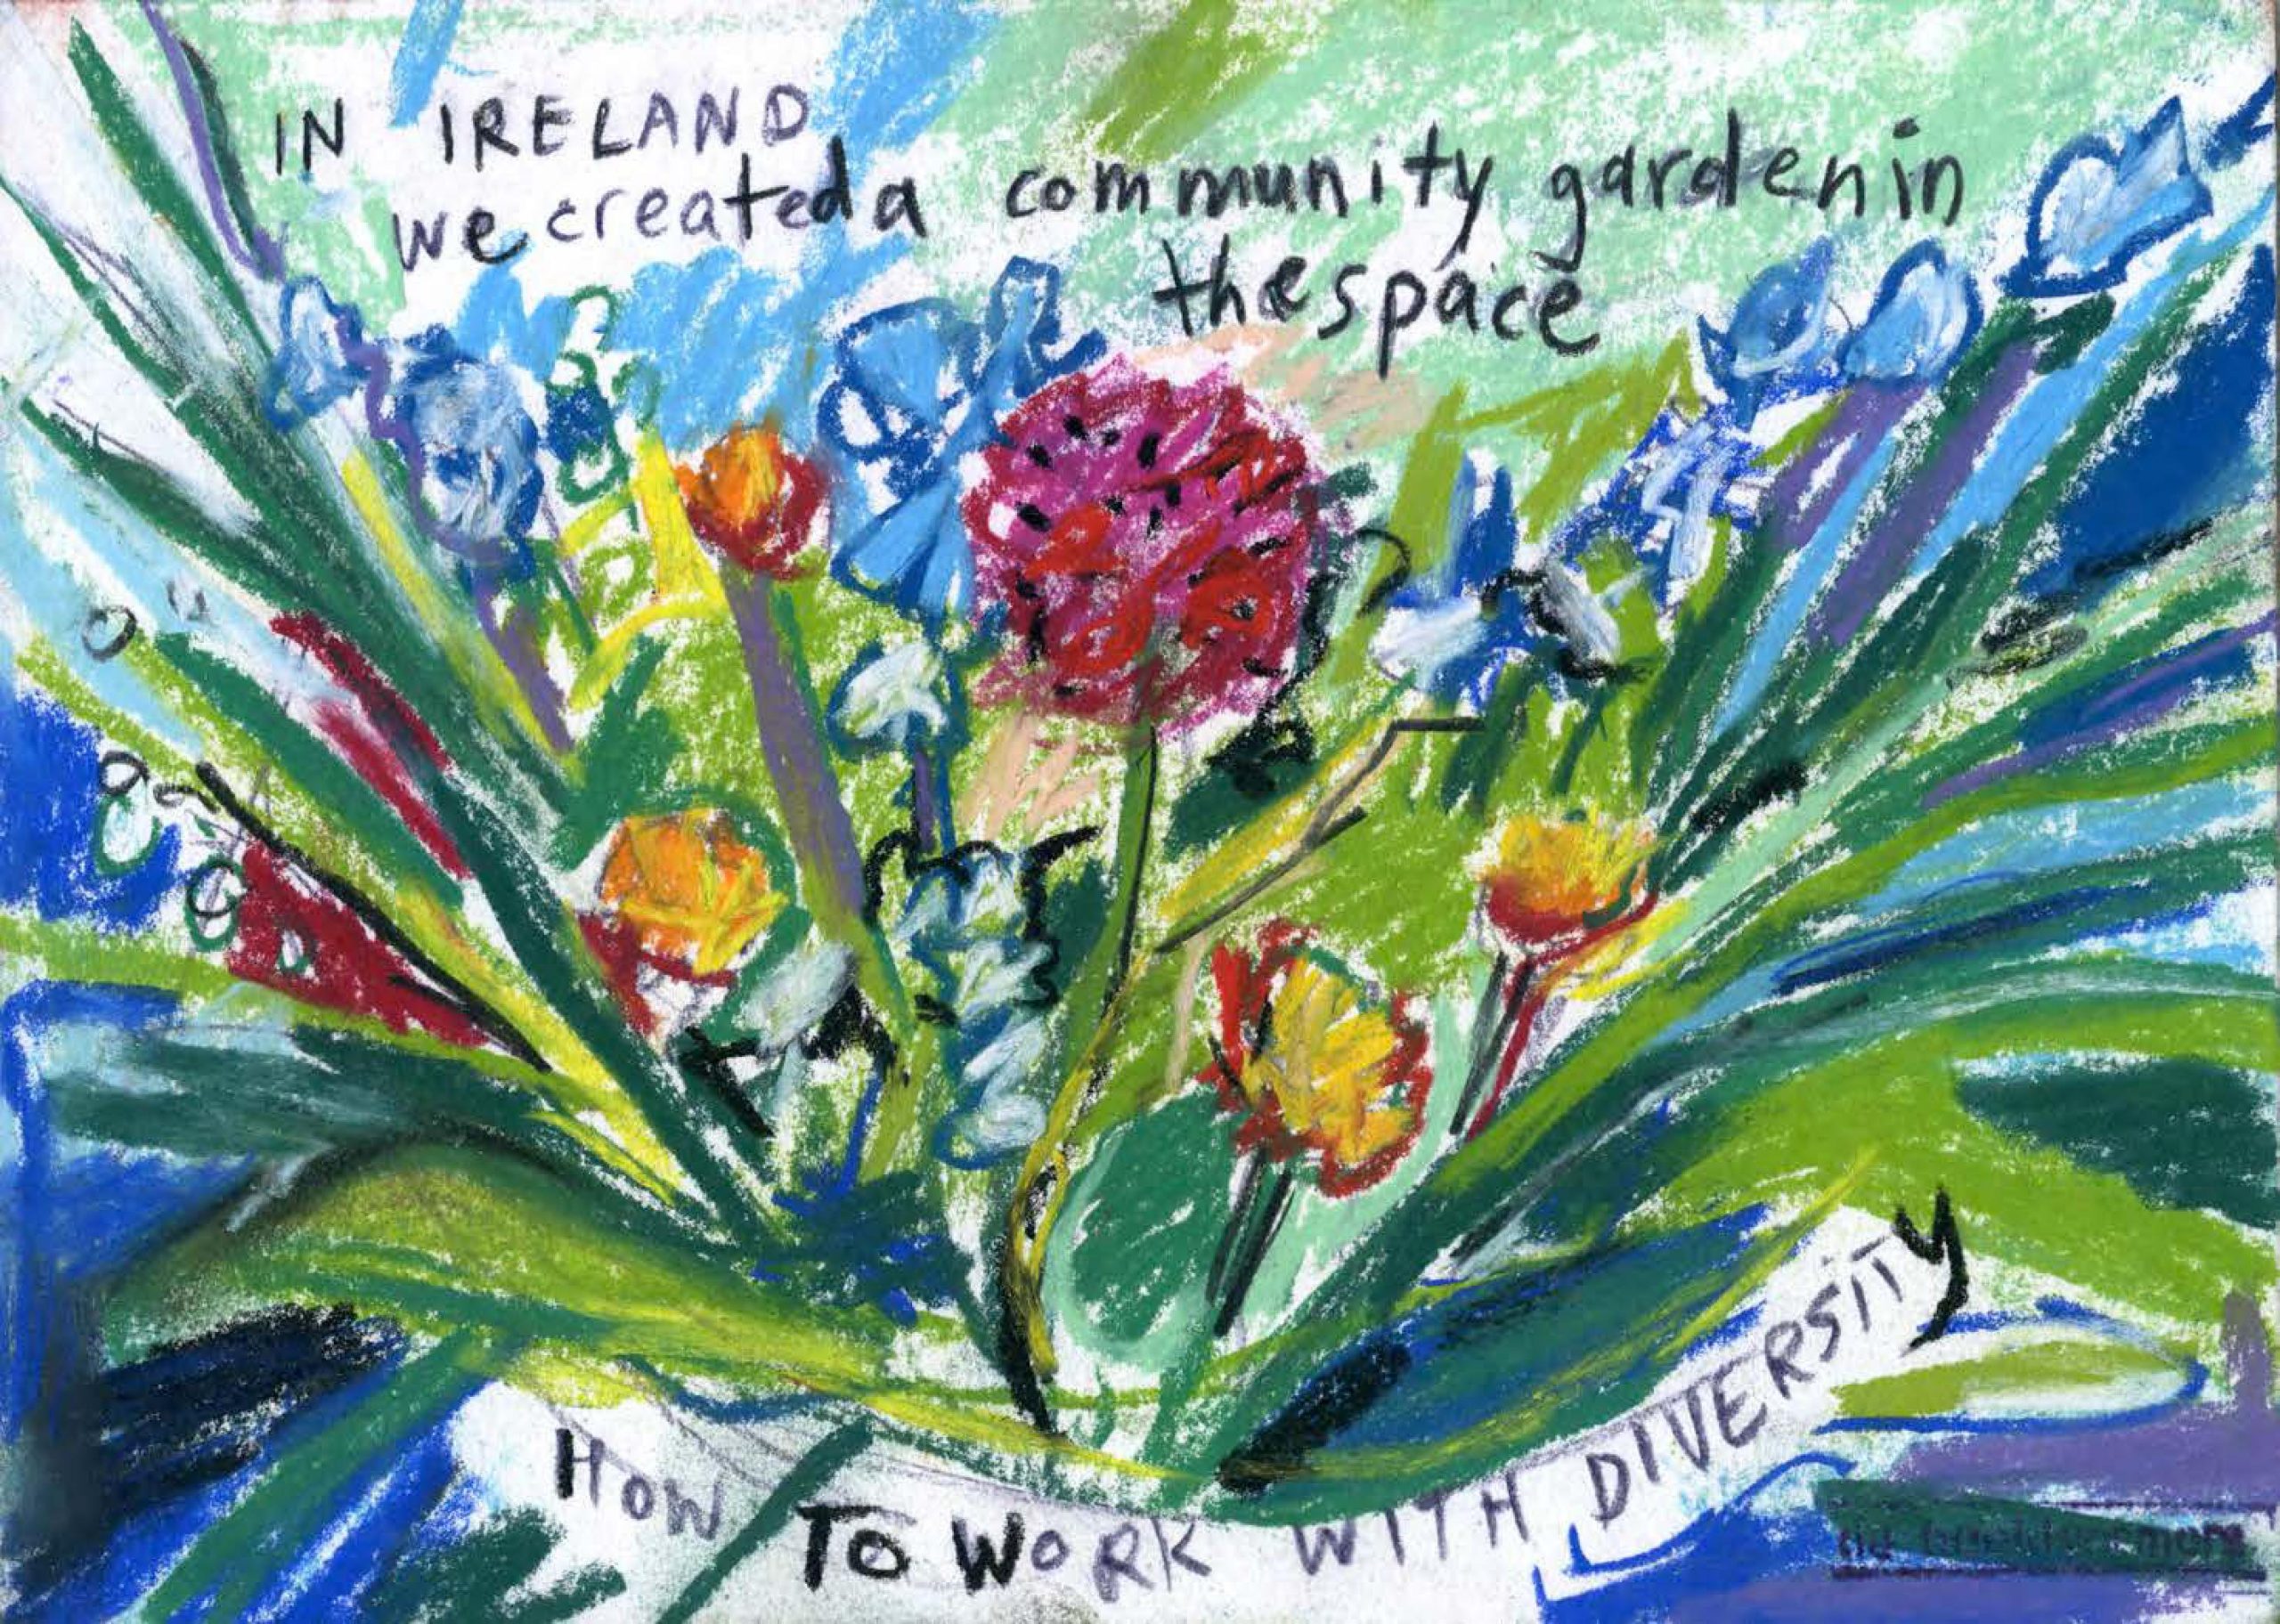 IN IRELAND
we created a community garden in
the space
HOW TO WORK WITH DIVERSITY